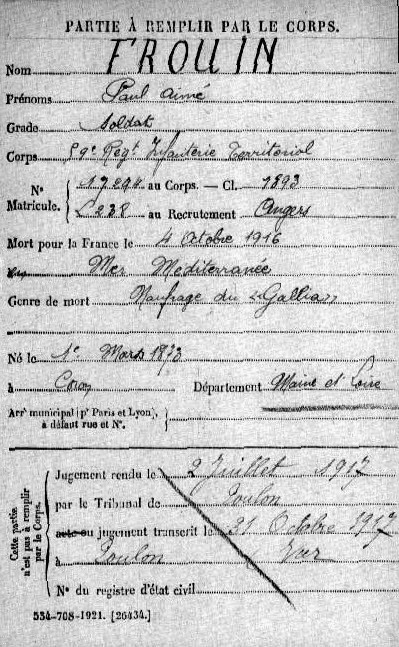 PARTIE À REMPLIR PAR LE CORPS.
Nom FROUIN
Prénoms Paul Aimé
Grade Soldat
Corps Regt Infanterie Territorial
No Matricule. au Corps. — Cl. 1893
au Recrutement Angers
Mort pour la France le 4 Octobre 1916
Mer Méditerranée
Genre de mort Naufrage du "Gallia"
Né le 1er Mars 1873
à Département Maine et Loire
Arrt municipal (pr Paris et Lyon),
à défaut rue et No.
Cette partie
n'est pas à remplir
par le Corps.
Jugement rendu le 2 Juillet 1917
par le Tribunal de Toulon
acte ou jugement transcrit le 31 Octobre 1917
à Toulon Var
No du registre d'état civil
534-708-1921. [26434.]